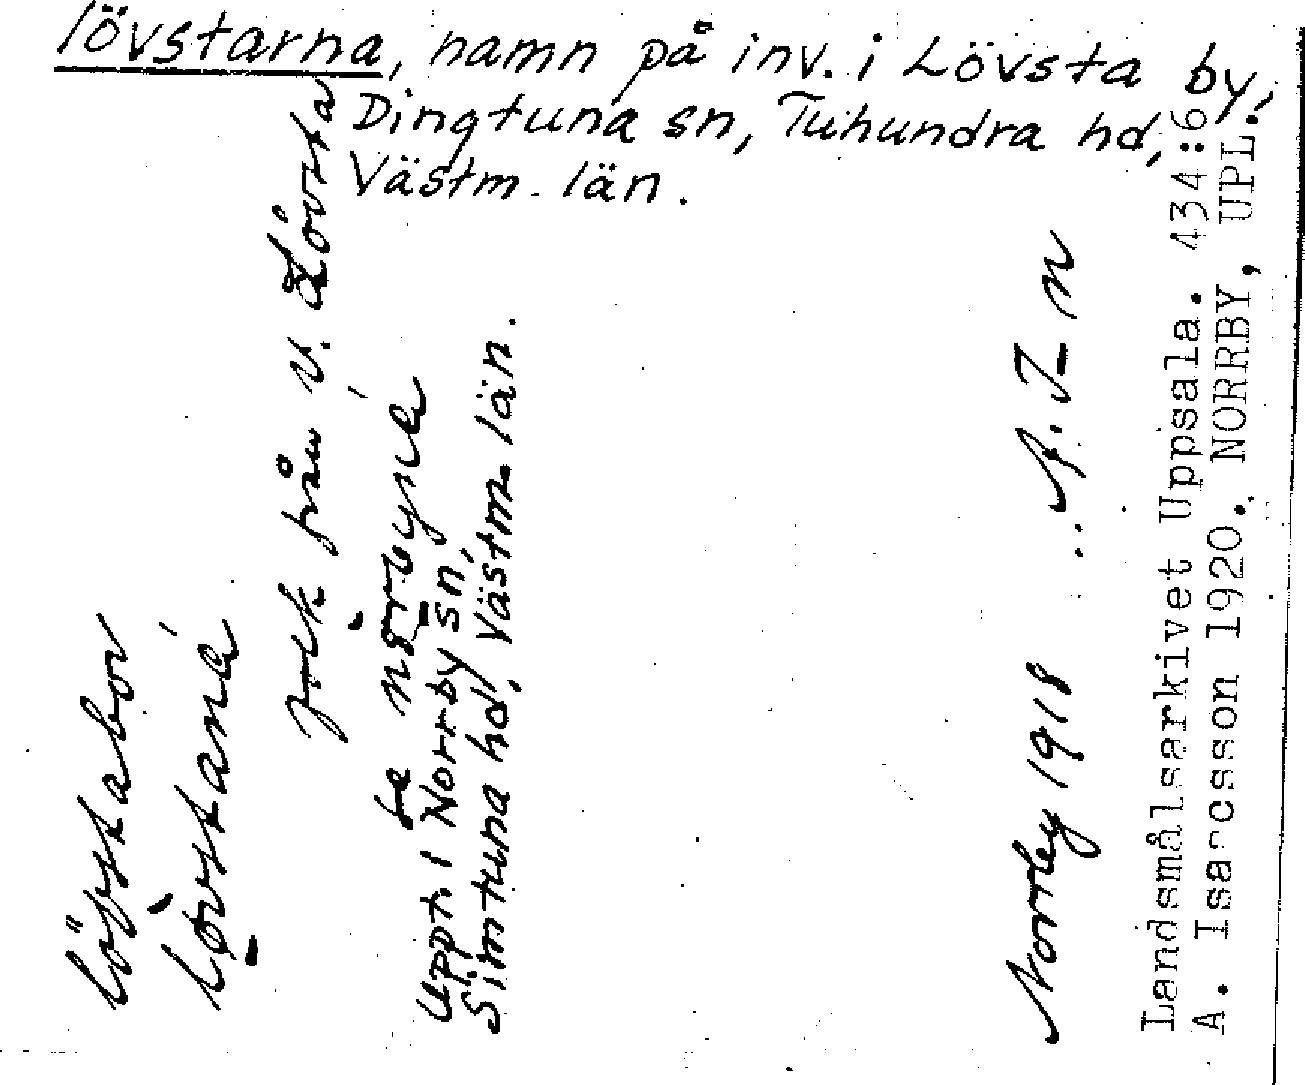 lövstarna, namn på inv. i Lövsta by,
Dingtuna sn, Tuhundra hd,
Västm. län.
löfstabor
folk från V. Lövsta
Uppt. i Norrby sn,
Simtuna hd, Västm. län.
Norrby 1918
Landsmålsarkivet Uppsala. 434:6
A. Isacsson 1920. NORRBY, UPL.